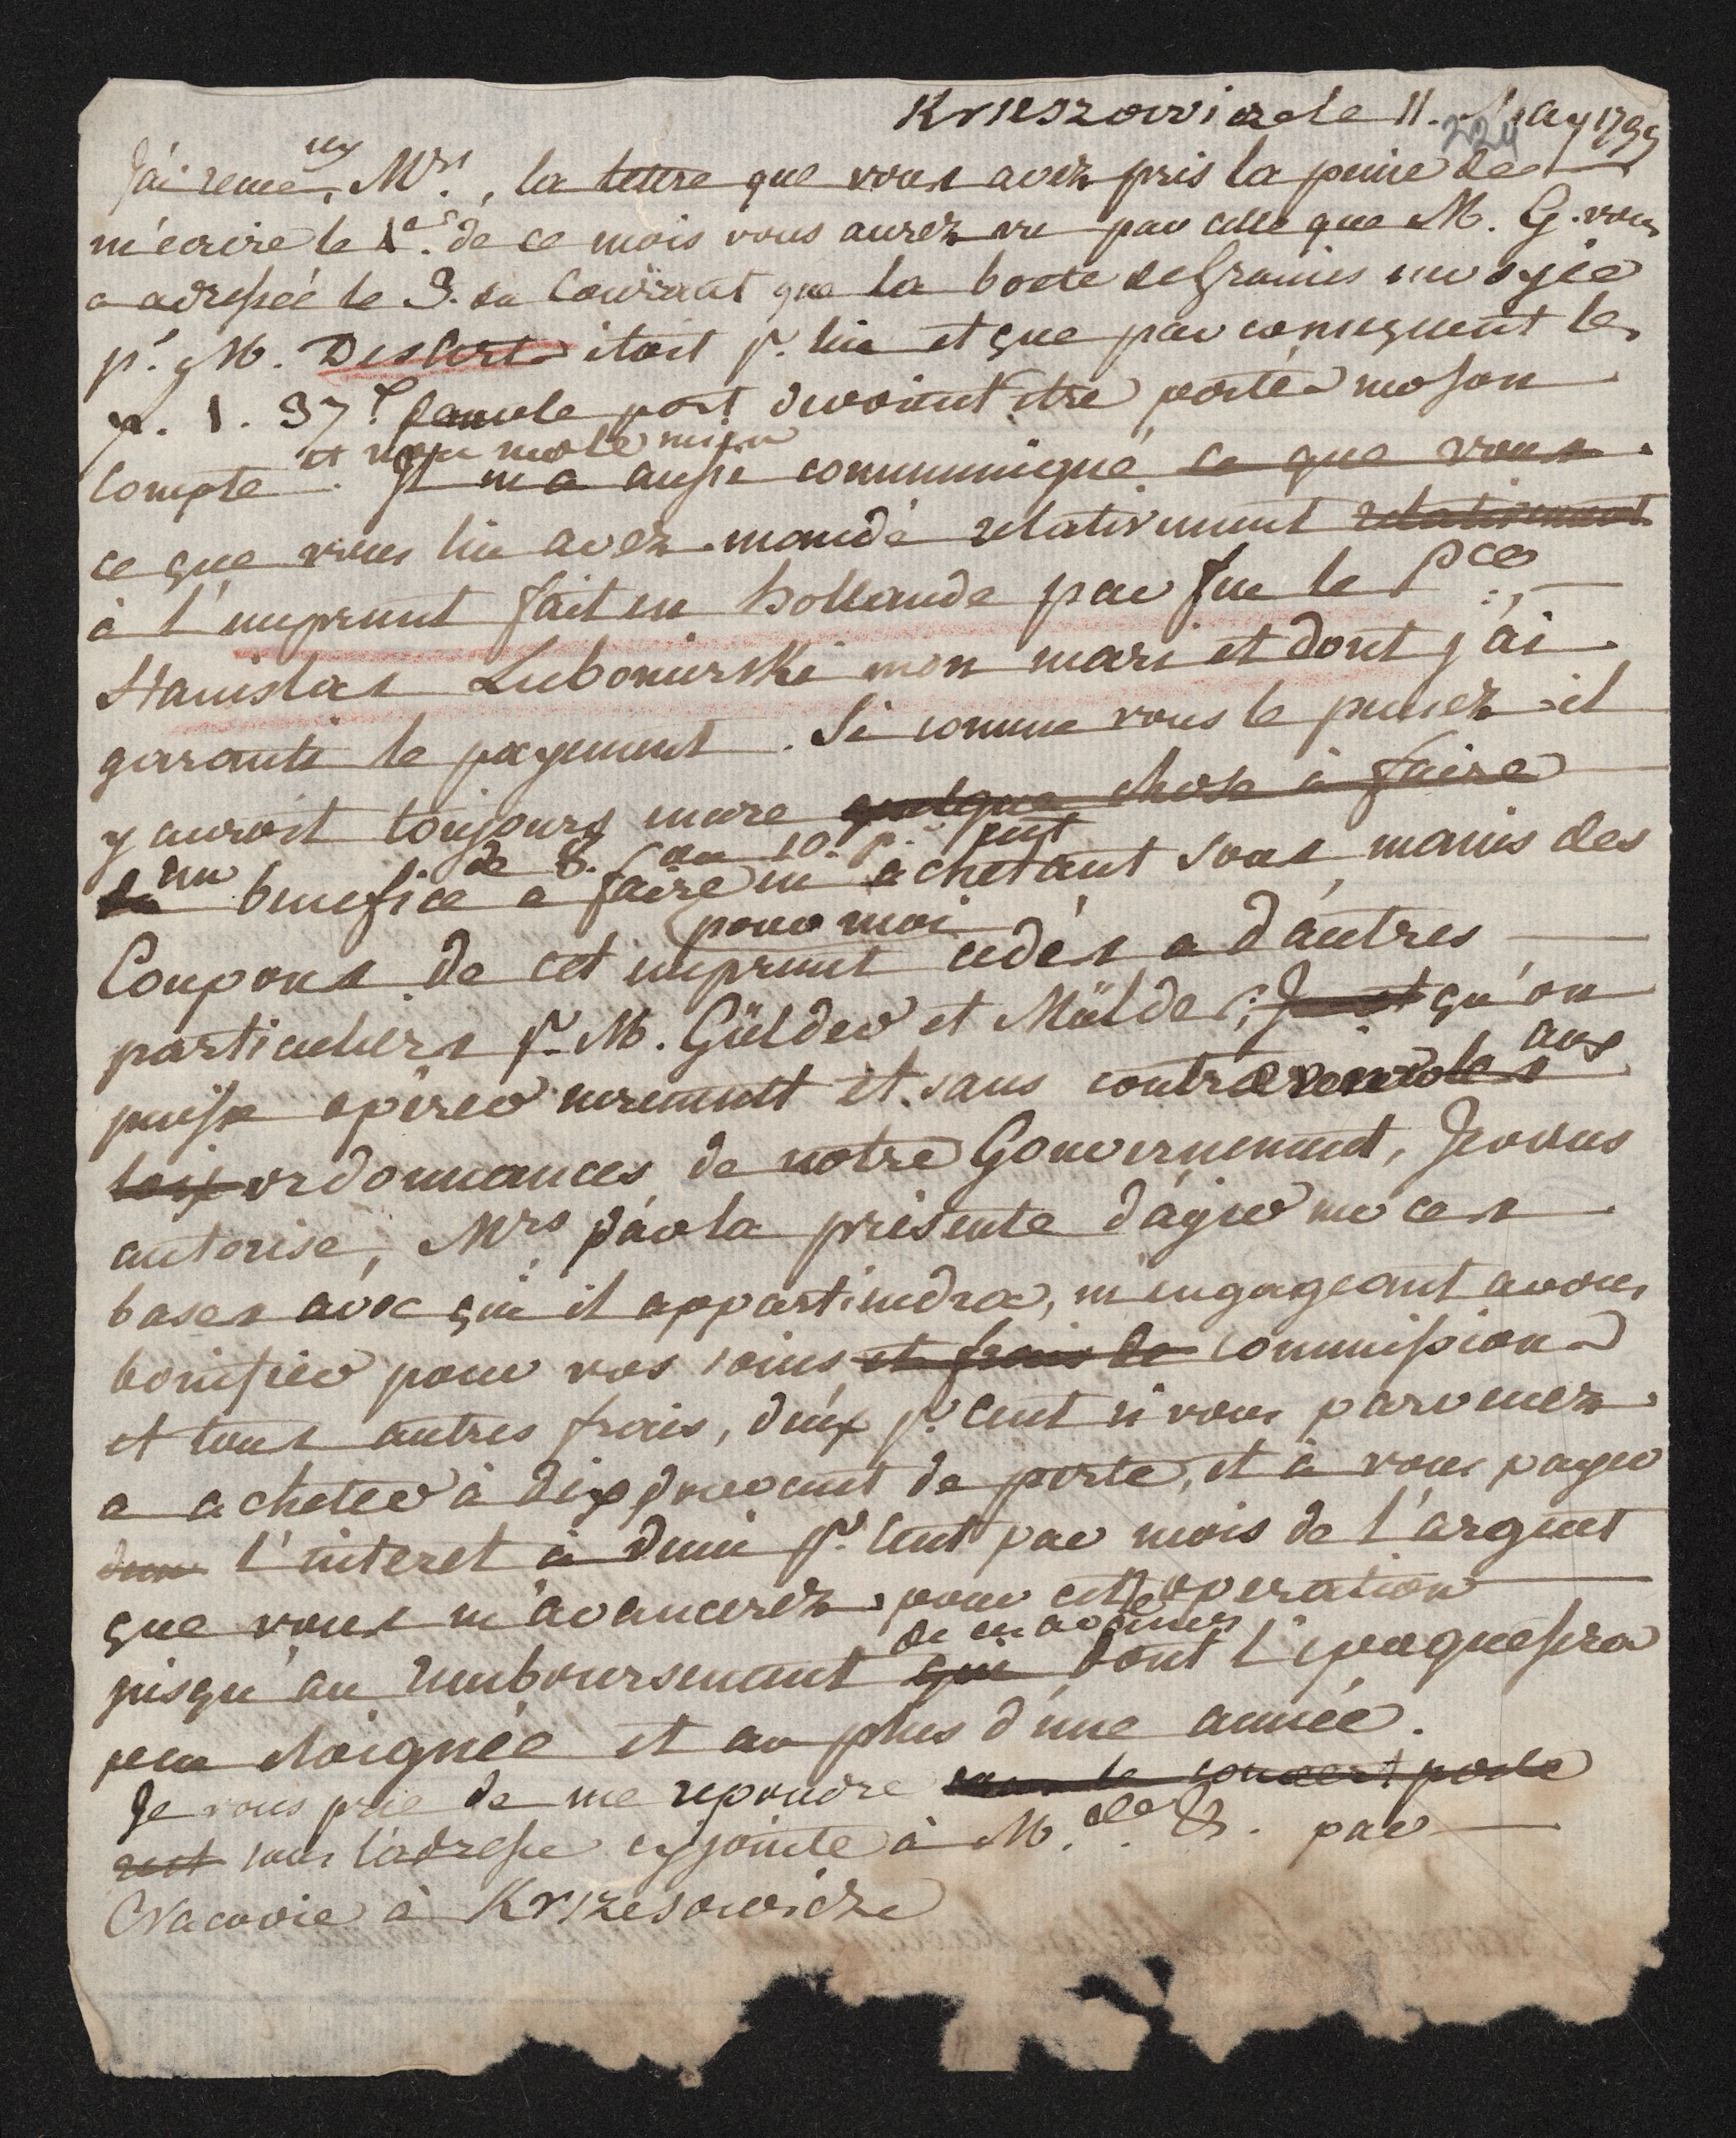 Krzeszowice le 11. May 1799
224
J'ai recue, Mrs., la lettre que vous avez pris la peine de
m'ecrire le 1er. de ce mois vous aurez vu par celle que M. G. vous
a adressée le 3. du Courant que la boete de graines
pr. M. Deslort étoit pr. lui et que par consequent les
1. 37 port devoient être portés
et non
Compte. Il m'a aussi communiqué ce que vous
ce que vous lui avez mandé relativement relativement
à l'emprunt fait en hollande par feu le Pce.
Stanislas Lubomirski mon mari et dont j'ai
garanti le payement. Si comme vous le pensez il
y auroit toujours encore quelque chose à faire
de 8. ou 10. p. cent
un benefice a faire en achetant sous mains des
pour moi
Coupons de cet emprunt cedés a d'autres
particuliers pr. M. Gülder et Mülder, qu'on
aux
puisse operer surement et sans contrevenir
loix ordonnances de notre Gouvernement, Je vous
autorise, Mrs par la presente d'agir sur ces
bases avec qui il appartiendra, m'engageant a vous
bonifier pour vos soins, et frais de commission
et tous autres frais, deux pr. cent si vous parvenez
a acheter à dix pour cent de perte, et à vous payer
l'interet à demi pr. Cent par mois de l'argent
que vous m'avancerez pour cette operation
de ces avances
jusqu'au remboursement qui dont l'epoque sera
peu eloignée et au plus d'une année.
Je vous prie de me repondre sous le couvert
sous l'adresse cy jointe à M. de &. par
Cracovie à Krzeszowice